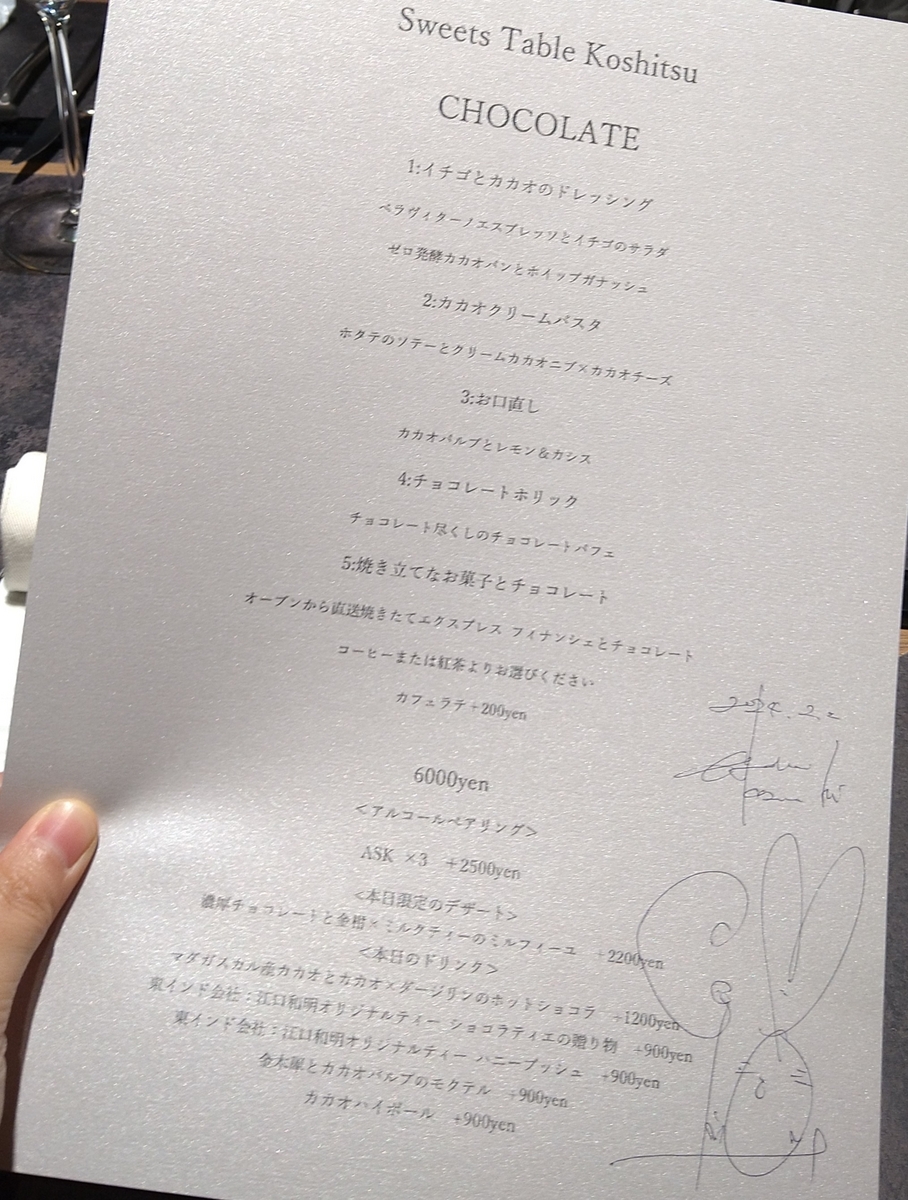 Sweets Table Koshitsu
CHOCOLATE
1:イチゴとカカオのドレッシング
ベラヴィターノエスプレッソとイチゴのサラダ
ゼロ発酵カカオパンとホイップガナッシュ
2:カカオクリームパスタ
ホタテのソテーとクリームカカオニブ×カカオチーズ
3:お口直し
カカオパルプとレモン&カシス
4:チョコレートホリック
チョコレート尽くしのチョコレートパフェ
5:焼き立てなお菓子とチョコレート
オーブンから直送焼きたてエクスプレス フィナンシェとチョコレート
コーヒーまたは紅茶よりお選びください
カフェラテ+200yen
6000yen
<アルコールペアリング>
ASK ×3 +2500yen
<本日限定のデザート>
濃厚チョコレートと金柑×ミルクティーのミルフィーユ +2200yen
<本日のドリンク>
マダガスカル産カカオとカカオ×ダージリンのホットショコラ +1200yen
東インド会社:江口和明オリジナルティー ショコラティエの贈り物 +900yen
東インド会社:江口和明オリジナルティー ハニーブッシュ +900yen
金木犀とカカオパルプのモクテル +900yen
カカオハイボール +900yen